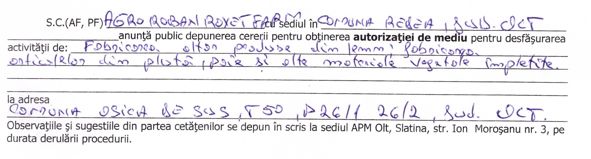 S.C.(AF, PF) AGRO ROBAN ROXET FARM cu sediul în COMUNA REDEA, JUD. OLT
anunţă public depunerea cererii pentru obţinerea autorizaţiei de mediu pentru desfăşurarea
activităţii de: Fabricarea altor produse din lemn; fabricarea
articolelor din plută, paie si alte materiale vegetale împletite.
la adresa
COMUNA OSICA DE SUS, T50, P26/1 26/2, Jud. OLT.
Observaţiile şi sugestiile din partea cetăţenilor se depun în scris la sediul APM Olt, Slatina, str. Ion Moroşanu nr. 3, pe
durata derulării procedurii.